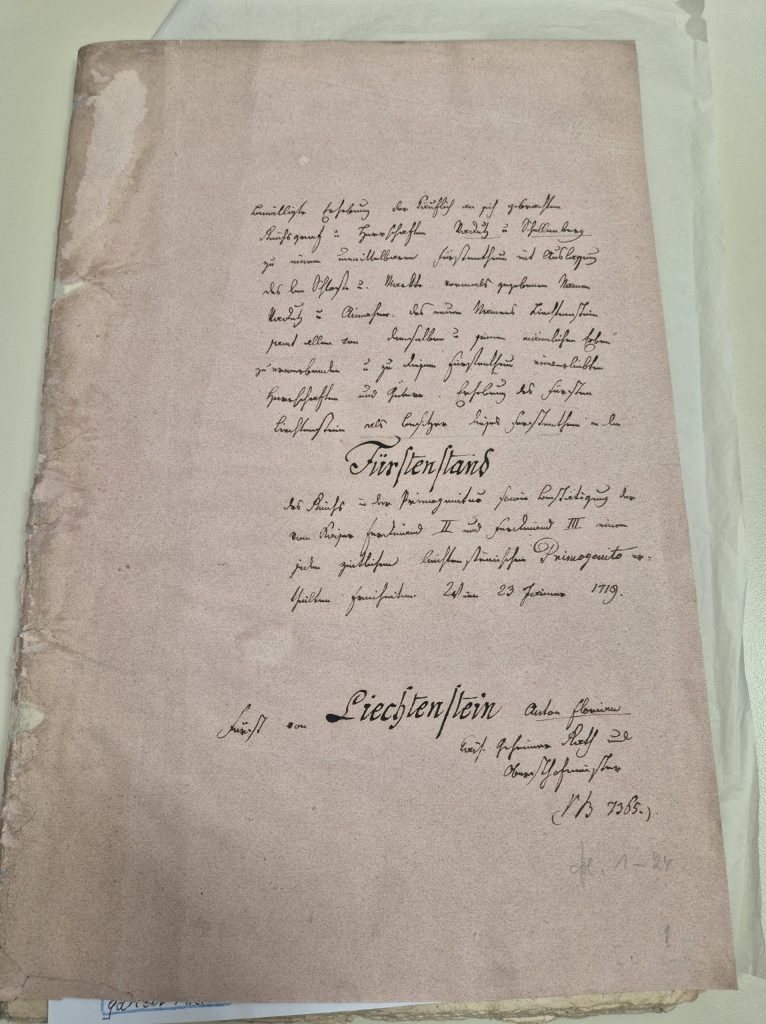 bewilligte Erhebung der käuflich an sich gebrachten
Reichsgraf u Herrschaften Vaduz u Schellenberg
zu einem unmittelbaren Fürstenthum mit Auslaßung
des den Schloße u. Markte vormals gegebenen Namen
Vaduz u Annahm. des neuen Namens Liechtenstein
samt allen von demselben u seinen männlichen Erben
zu erwerbenden u zu diesem Fürstenthum einverleibten
Herrschaften und Gütern. Erhebung des Fürsten
Liechtenstein als Besitzer dieses Fürstenthum in den
Fürstenstand
des Reichs in der Primogenitur sowie Bestätigung der
von Kaiser Ferdinand II und Ferdinand III einem
jeden zeitlichen liechtensteinischen Primogenito er-
theilten Freiheiten. Wien 23 Jänner 1719.
Fürst von Liechtenstein Anton Florian
kais. Geheimer Rath und
Obersthofmeister
7365.)
1-24
1